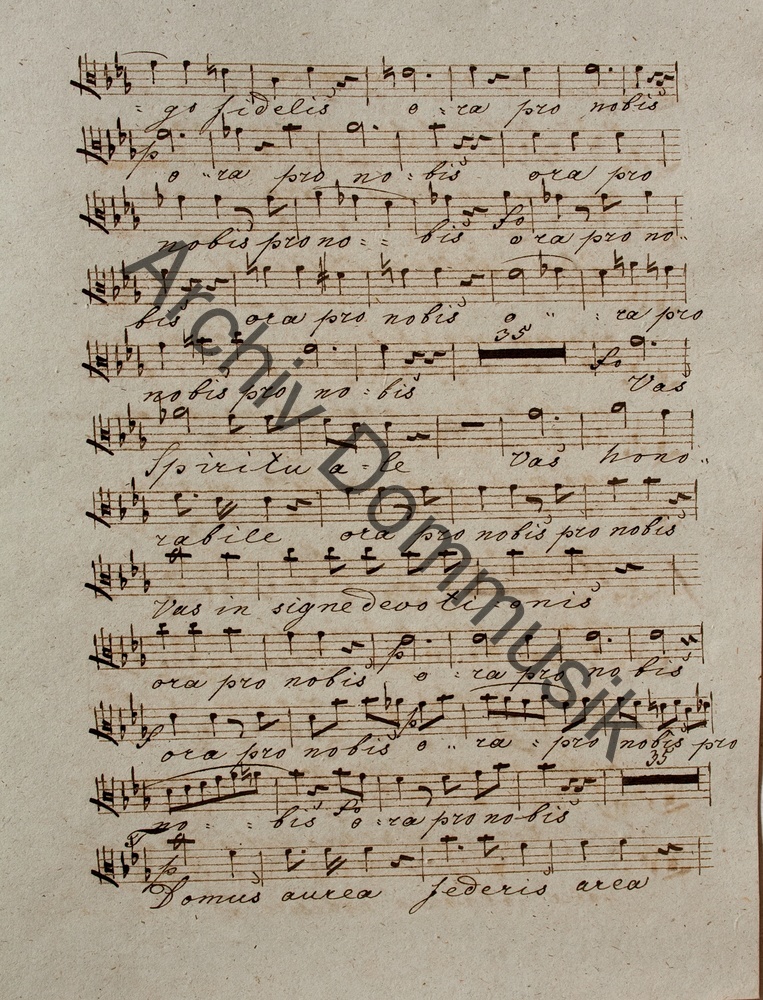 = go fidelis o : ra pro nobis
p
o " ra pro no : bis ora pro
fo
nobis pro no : : bis ora pro no..
bis ora pro nobis o " : ra pro
35
fo
nobis pro no : bis Vas
Spiritu a - le Vas hono..
rabile ora pro nobis pro nobis
Vas in signe devoti - onis
p
ora pro nobis o : ra pro no bis
f p
ora pro nobis o .. ra : pro nobis pro
35
fo
no : : bis o - ra pro no - bis
T
p
Domus aurea federis arca
Archiv Dommusik